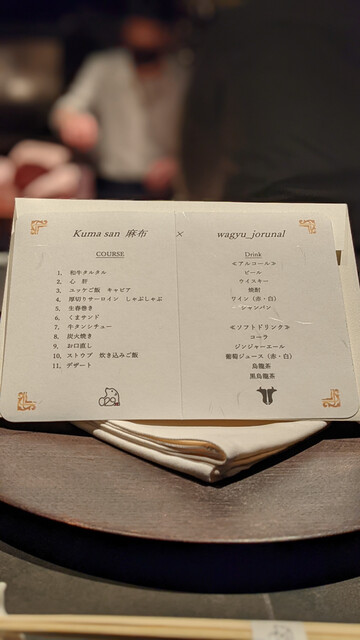 Kuma san 麻布 × wagyu_jorunal
COURSE
1. 和牛タルタル
2. 心 肝
3. ユッケご飯 キャビア
4. 厚切りサーロイン しゃぶしゃぶ
5. 生春巻き
6. くまサンド
7. 牛タンシチュー
8. 炭火焼き
9. お口直し
10. ストウブ 炊き込みご飯
11. デザート
Drink
≪アルコール≫
ビール
ウイスキー
焼酎
ワイン (赤・白)
シャンパン
≪ソフトドリンク≫
コーラ
ジンジャーエール
葡萄ジュース (赤・白)
烏龍茶
黒烏龍茶